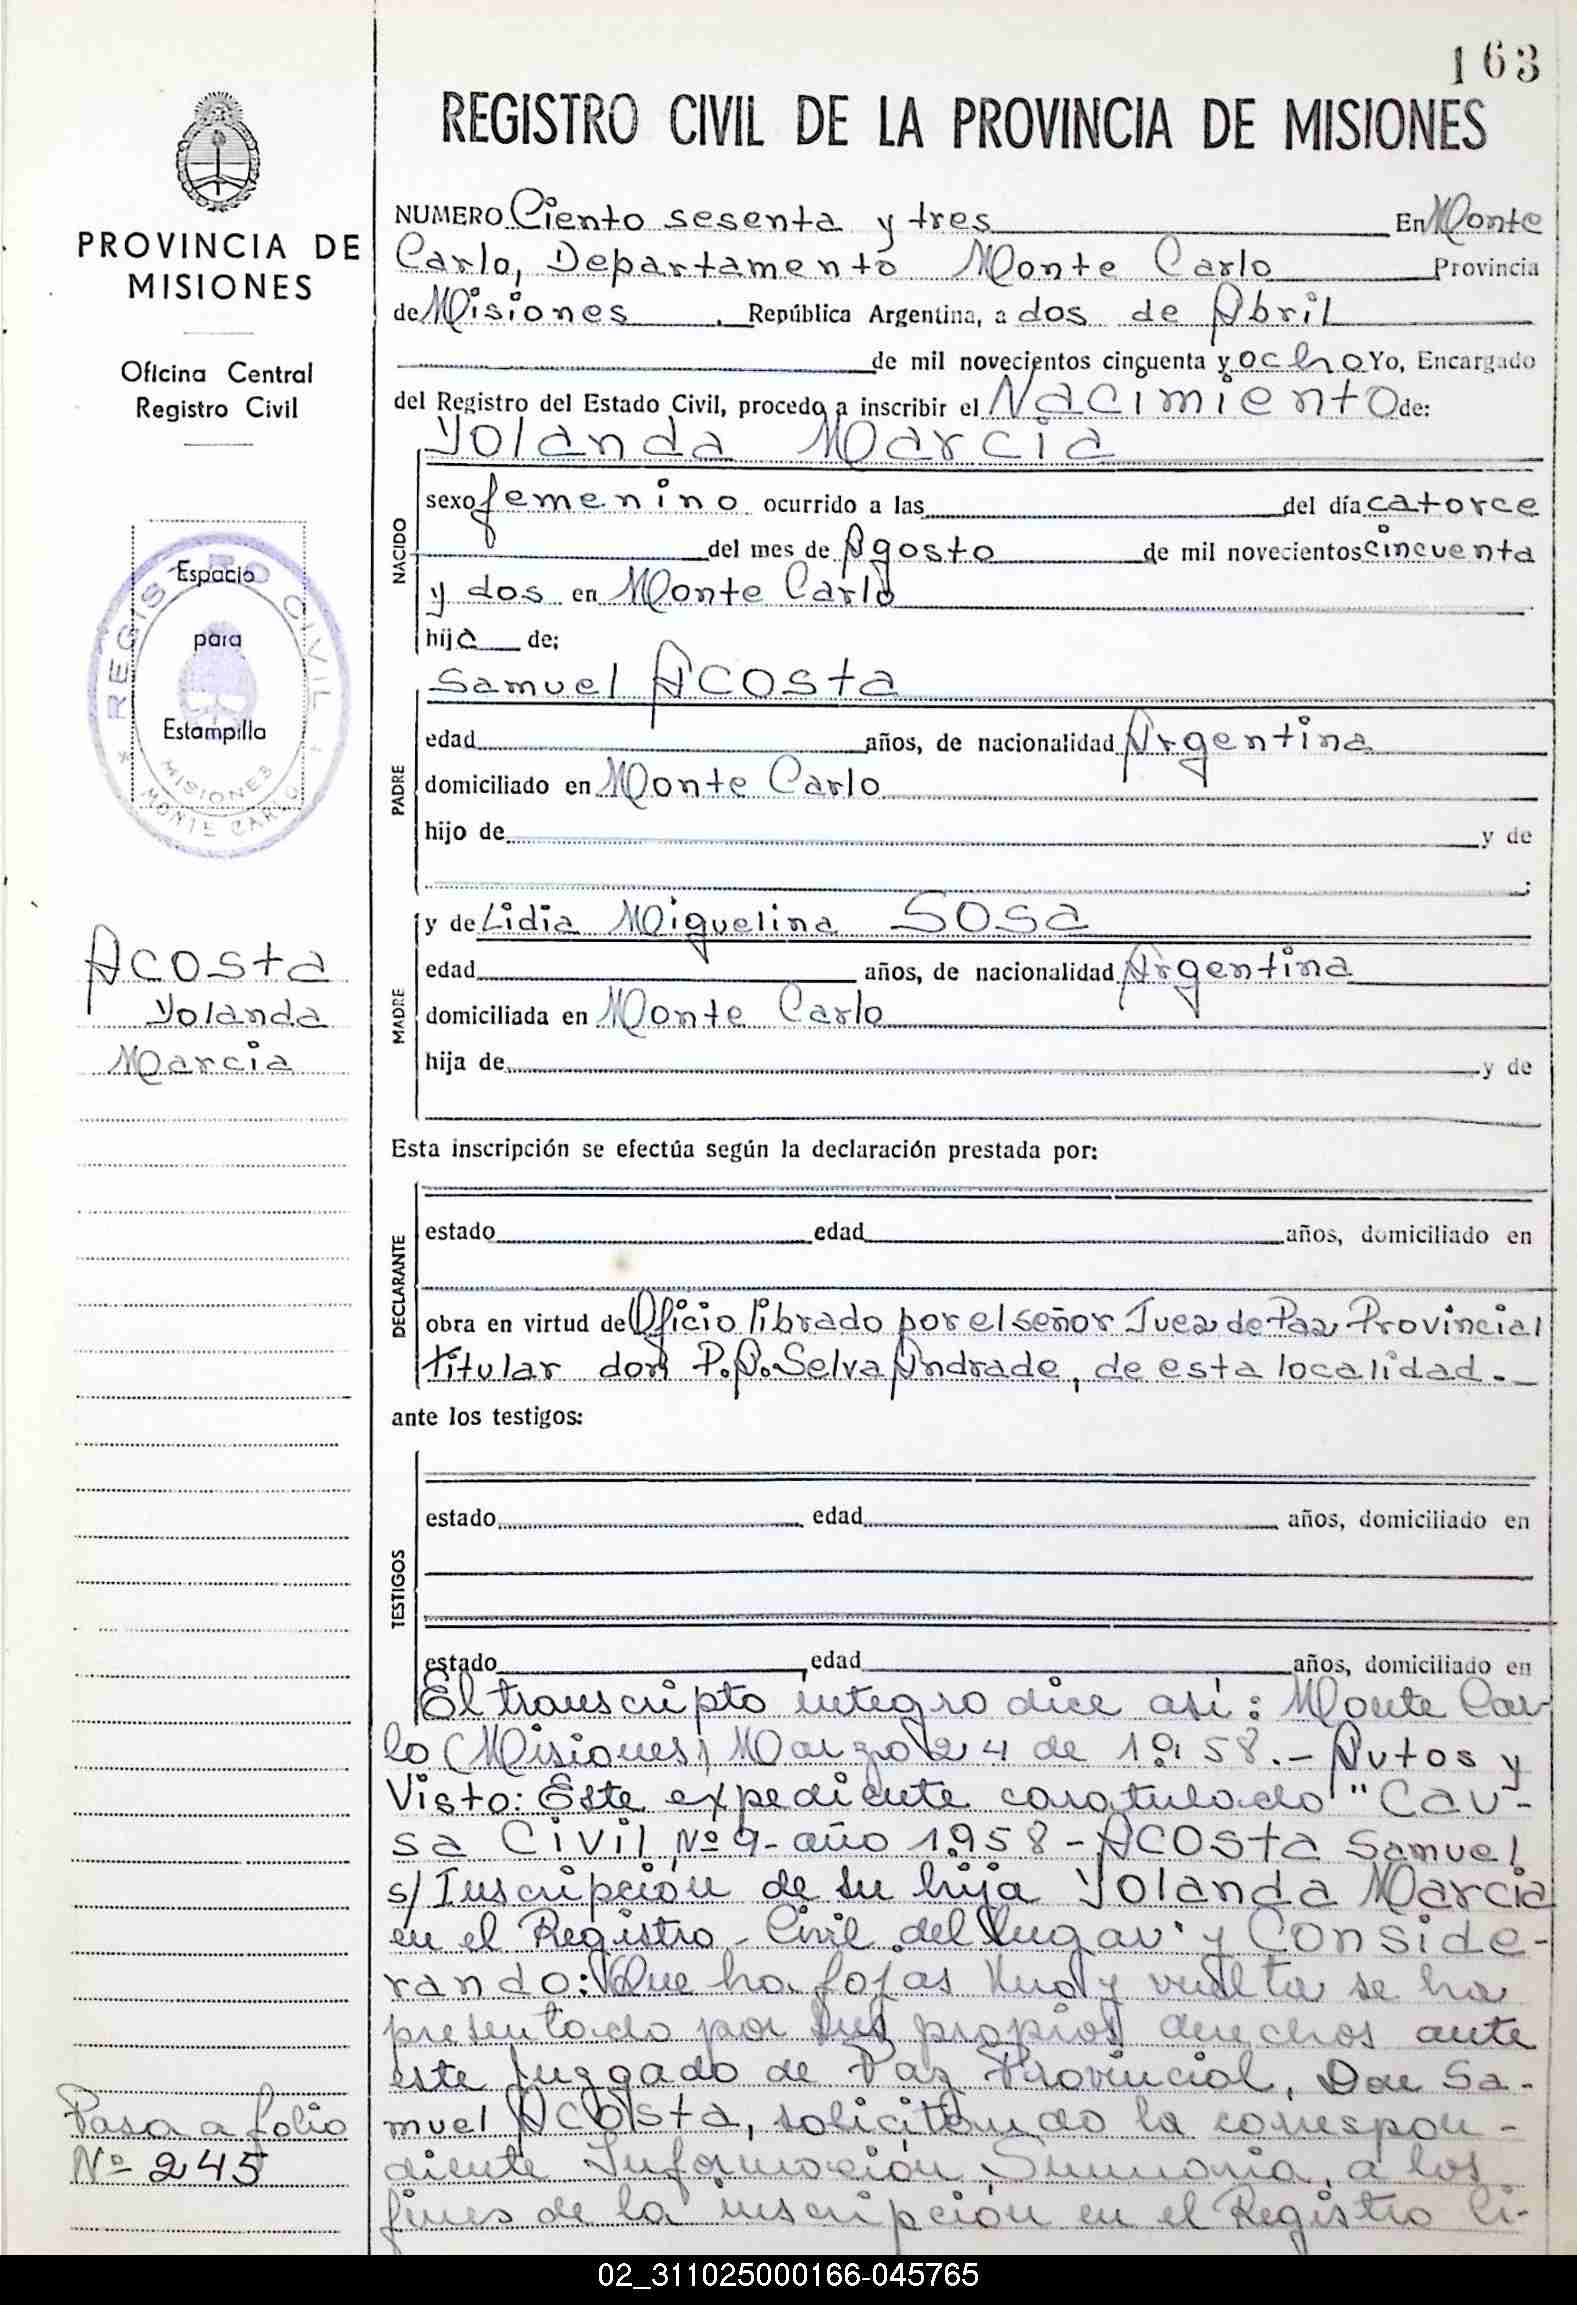 163
REGISTRO CIVIL DE LA PROVINCIA DE MISIONES
PROVINCIA DE
MISIONES
Oficina Central
Registro Civil
Espacio
para
Estampilla
REGISTRO CIVIL
MISIONES
MONTE CARLO
Acosta
Yolanda
Marcia
Pasa a folio
Nº 245
NUMERO Ciento sesenta y tres En Monte
Carlo, Departamento Monte Carlo Provincia
de Misiones, República Argentina, a dos de Abril
de mil novecientos cincuenta y ocho Yo, Encargado
del Registro del Estado Civil, procedo a inscribir el Nacimiento de:
Yolanda Marcia
NACIDO
sexo femenino ocurrido a las del día catorce
del mes de Agosto de mil novecientos cincuenta
y dos en Monte Carlo
hija de;
Samuel Acosta
PADRE
edad años, de nacionalidad Argentina
domiciliado en Monte Carlo
hijo de y de
;
y de Lidia Miguelina Sosa
MADRE
edad años, de nacionalidad Argentina
domiciliada en Monte Carlo
hija de y de
Esta inscripción se efectúa según la declaración prestada por:
DECLARANTE
estado edad años, domiciliado en
obra en virtud de Oficio librado por el señor Juez de Paz Provincial
titular don P.A. Selva Andrade, de esta localidad.-
ante los testigos:
TESTIGOS
estado edad años, domiciliado en
estado edad años, domiciliado en
El transcripto integro dice así: Monte Car
lo (Misiones) Marzo 24 de 1958.- Autos y
Visto: Este expediente caratulado "Cau-
sa Civil Nº 9- año 1958- Acosta Samuel
s/ Inscripción de su hija Yolanda Marcia
en el Registro Civil del lugar" y Conside-
rando: Que ha fojas y vuelta se ha
presentado por sus propios derechos ante
este Juzgado de Paz Provincial, Don Sa-
muel Acosta, solicitando la correspon-
diente Información Sumaria, a los
fines de la inscripción en el Registro Ci-
02_311025000166-045765